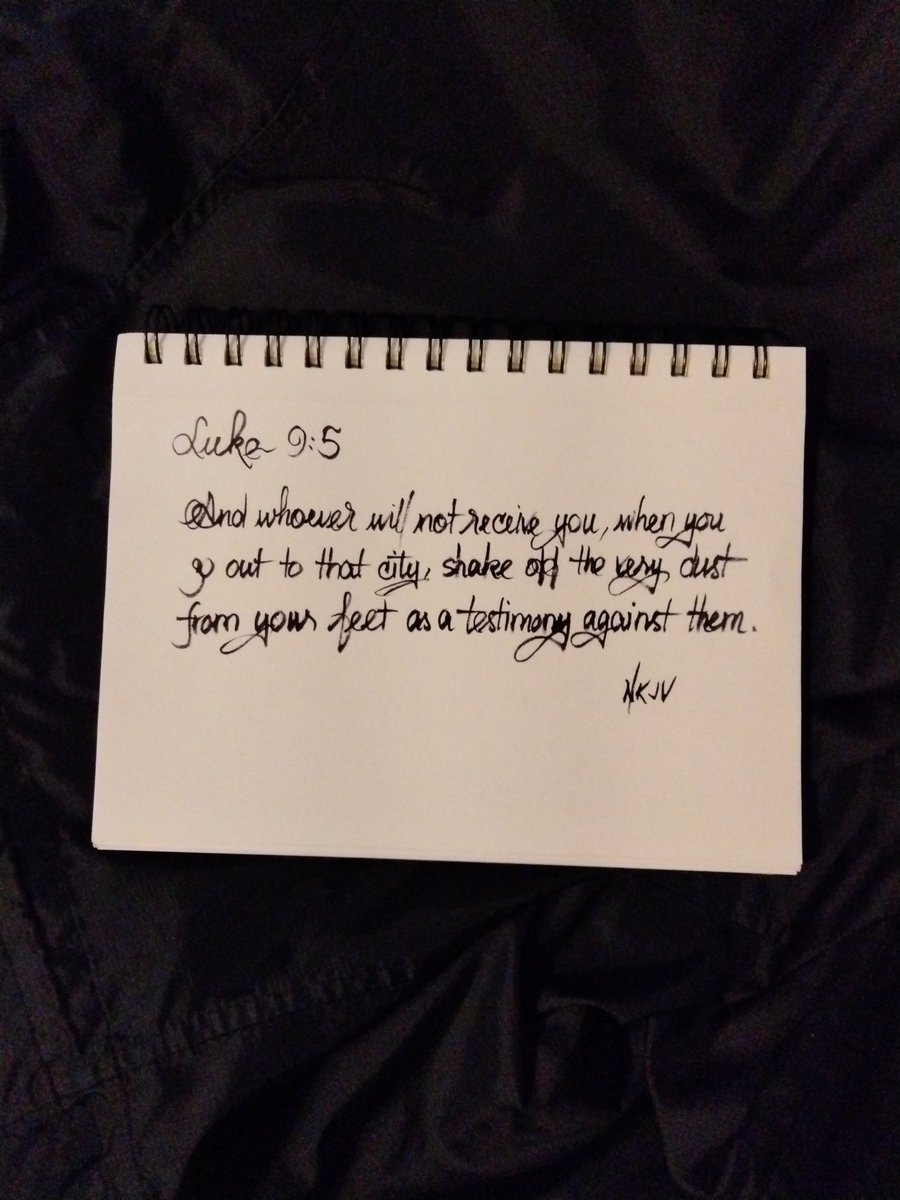 Luke 9:5
And whoever will not receive you, when you
go out to that city, shake off the very dust
from your feet as a testimony against them.
NKJV